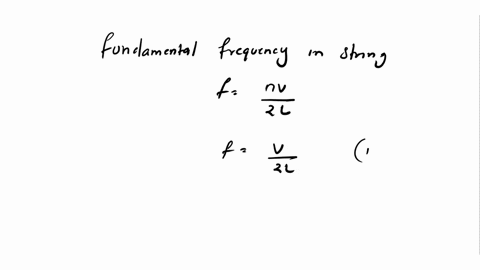 fundamental frequency in string
f = nv / 2L
f = v / 2L (